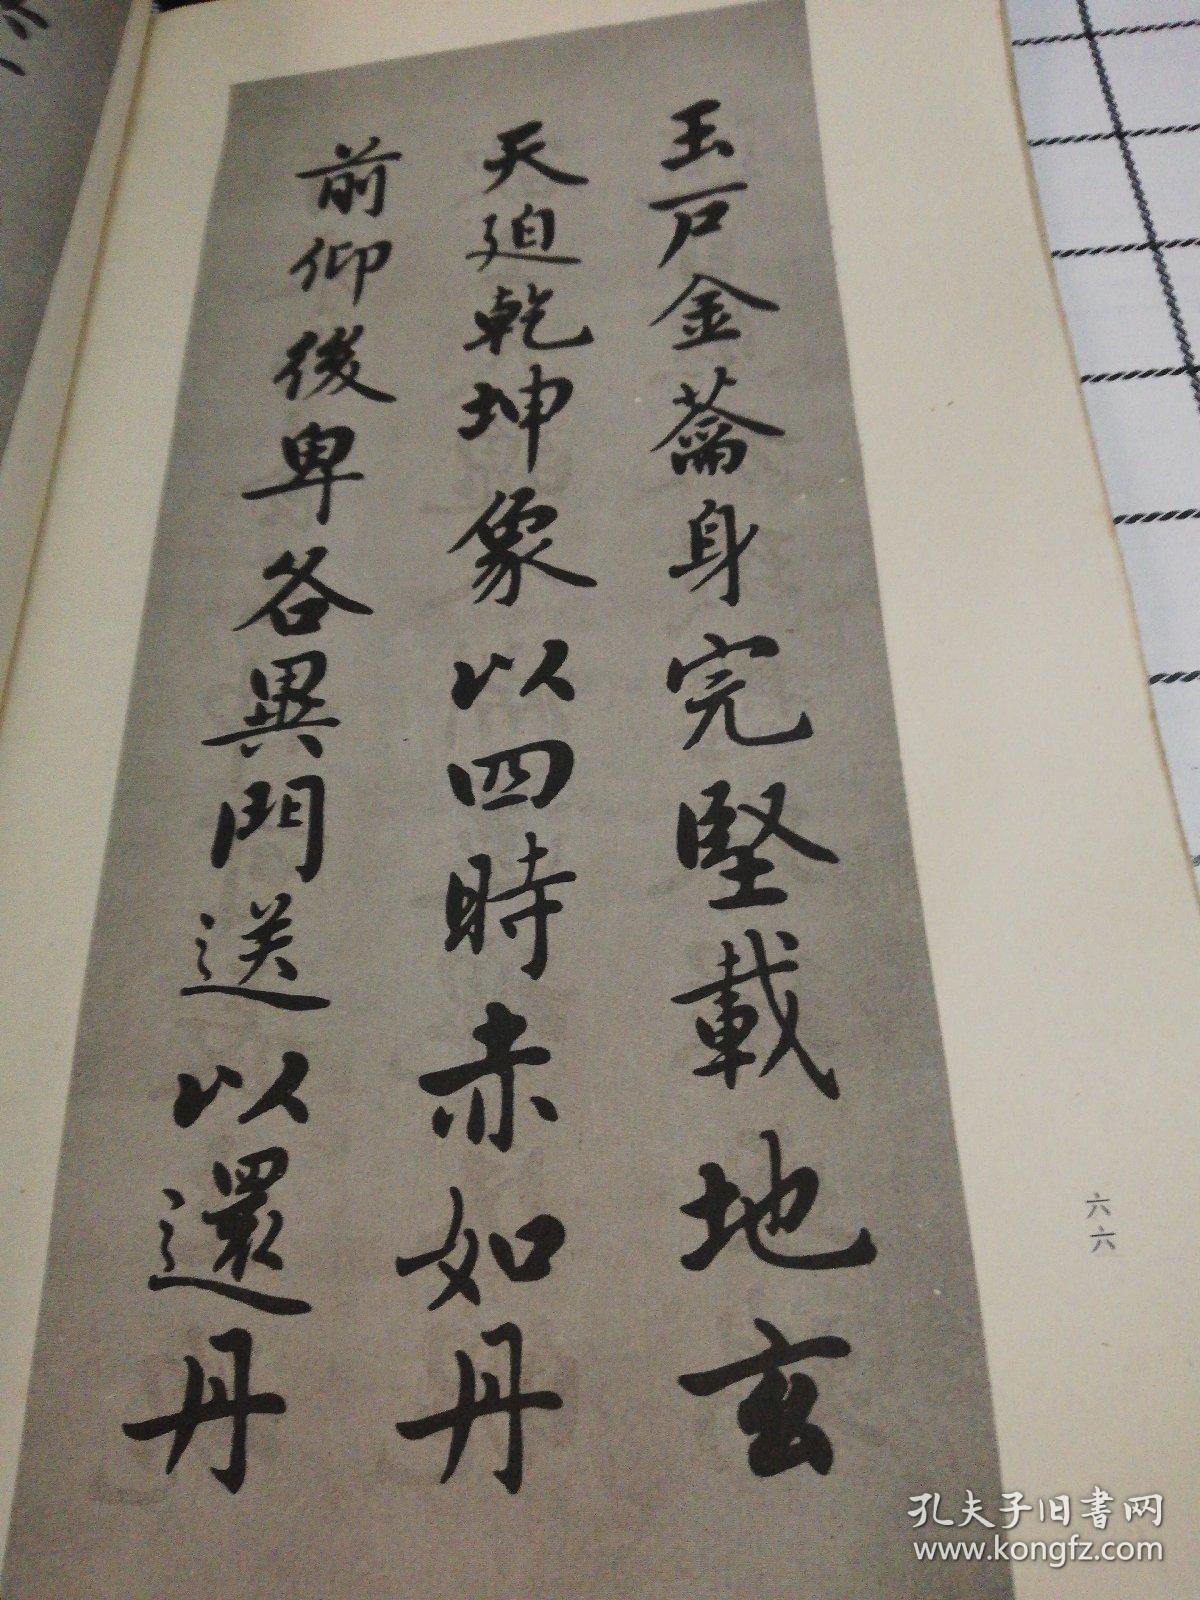 玉戸金蘥身完堅載地玄
天迫乾坤象以四時赤如丹
前仰後卑各異門送以還丹
六六
孔夫子旧书网
www.kongfz.com